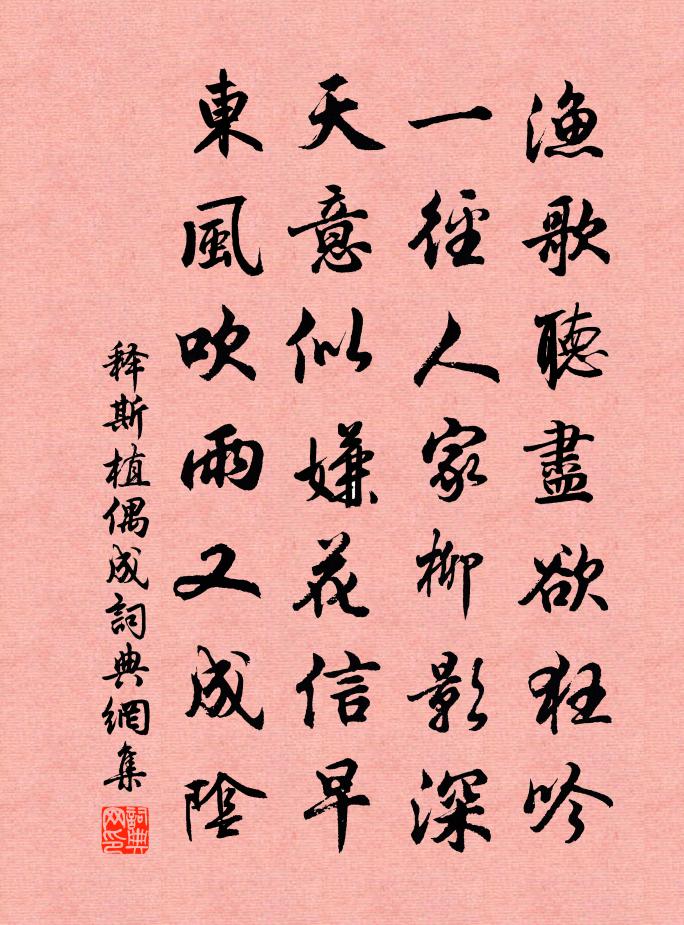 漁歌聽盡欲狂吟
一徑人家柳影深
天意似嫌花信早
東風吹雨又成陰
释斯植偶成詞典網集
詞典网印